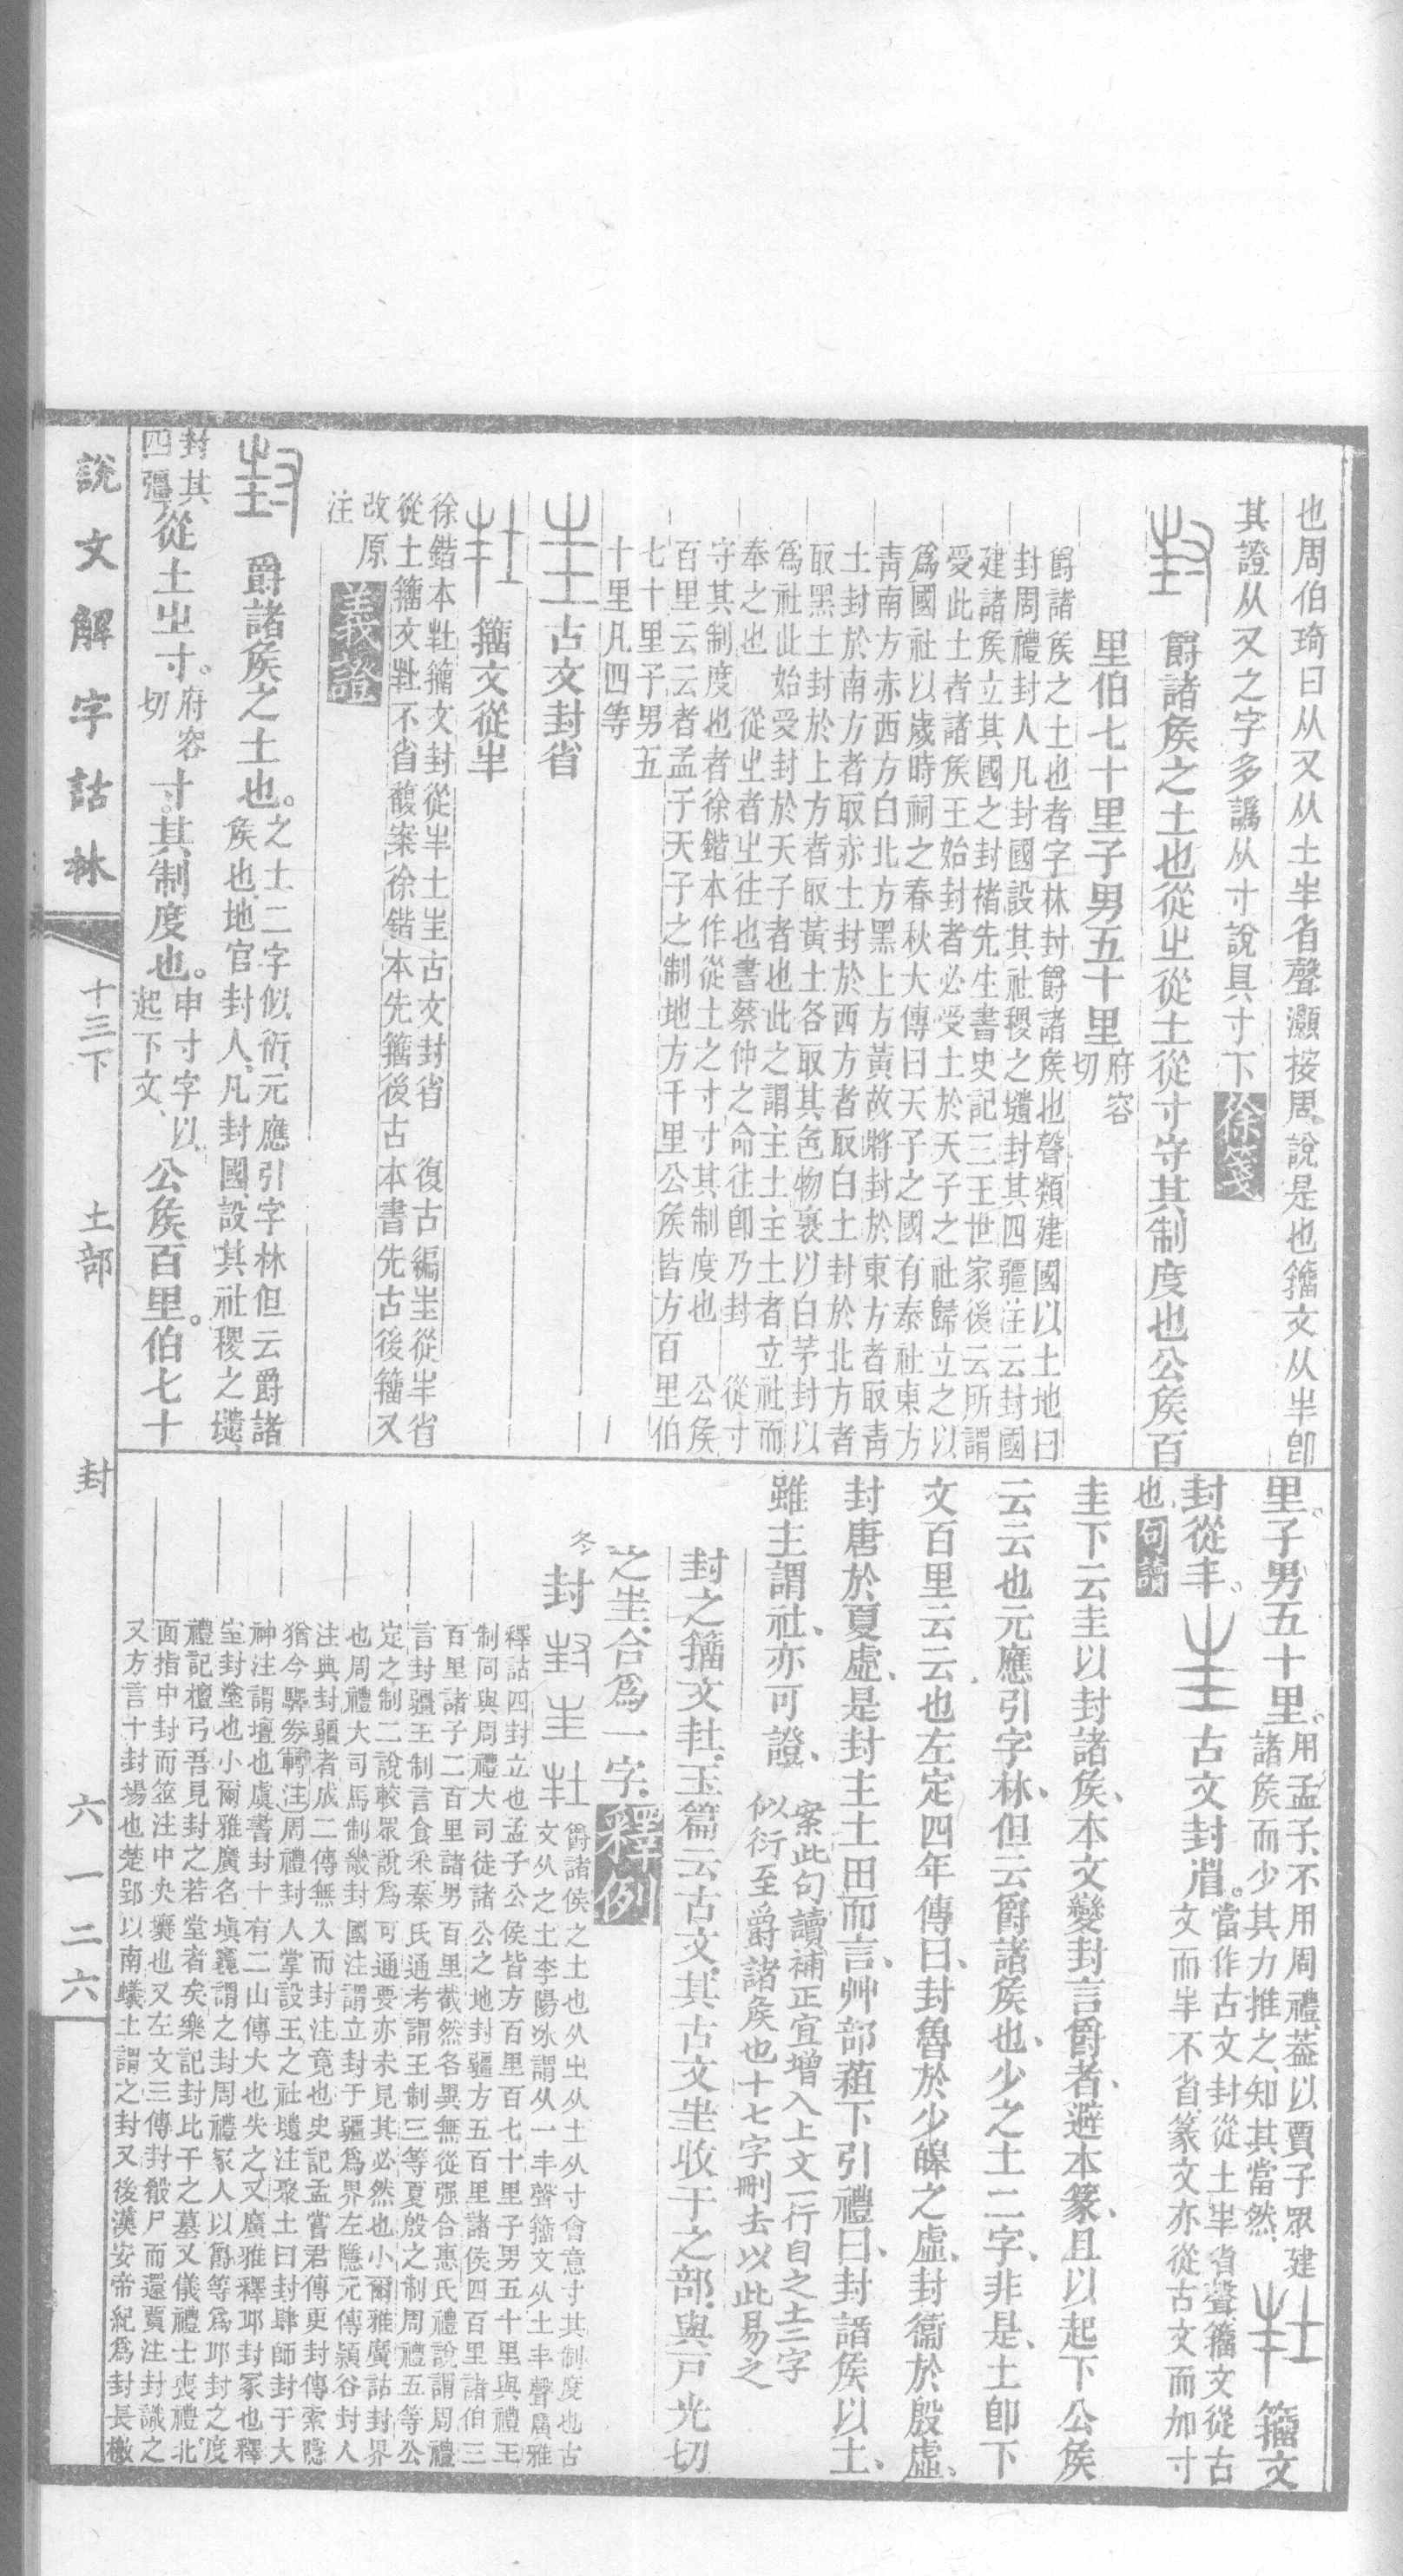 也周伯琦曰从又从土半省聲灝按周說是也籒文从半卽
其證从又之字多譌从寸說具寸下徐箋
爵諸矦之土也從㞢從土從寸守其制度也公矦百
里伯七十里子男五十里府容
切
爵諸矦之土也者字林封爵諸矦也聲類建國以土地曰
封周禮封人凡封國設其社稷之壝封其四疆注云封國
建諸矦立其國之封褚先生書史記三王世家後云所謂
受此土者諸矦王始封者必受土於天子之社歸立之以
爲國社以歲時祠之春秋大傳曰天子之國有泰社東方
靑南方赤西方白北方黑上方黃故將封於東方者取靑
土封於南方者取赤土封於西方者取白土封於北方者
取黑土封於上方者取黃土各取其色物裹以白茅封以
爲社此始受封於天子者也此之謂主土主土者立社而
奉之也 從㞢者㞢往也書蔡仲之命往卽乃封 從寸
守其制度也者徐鍇本作從土之寸寸其制度也 公矦
百里云云者孟子天子之制地方千里公矦皆方百里伯
七十里子男五
十里凡四等
古文封省
籒文從半
徐鍇本籒文封從半土古文封省 復古編從半省
從土籒文不省馥案徐鍇本先籒後古本書先古後籒又
改原
注
義證
爵諸矦之土也。之土二字似衍、元應引字林但云爵諸
矦也、地官封人、凡封國、設其社稷之壝、
封其
四疆、從土㞢寸。府容
切寸、其制度也。申寸字、以
起下文、公矦百里。伯七十
說文解字詁林 十三下 土部 封 六一二六
里。子男五十里。用孟子、不用周禮、葢以賈子眾建
諸矦而少其力推之、知其當然、籒文
封從丰。古文封渻。當作古文封從土半省聲、籒文從古
文而半不省、篆文亦從古文而加寸
也、句讀
圭下云圭以封諸矦、本文變封言爵者、避本篆、且以起下公矦
云云也、元應引字林、但云爵諸矦也、少之土二字、非是、土卽下
文百里云云也、左定四年傳曰、封魯於少皞之虛、封衞於殷虛、
封唐於夏虛、是封主土田而言、艸部蒩下引禮曰、封諸矦以土、
雖主謂社、亦可證、案此句讀補正宜增入上文一行自之土二字
似衍至爵諸矦也十七字刪去以此易之
封之籒文、玉篇云古文、其古文㞷收于之部、與戸光切
之㞷、合爲一字、釋例
冬
封 爵諸侯之土也从㞢从土从寸會意寸其制度也古
文从之土李陽冰謂从一丰聲籒文从土丰聲廣雅
釋詁四封立也孟子公侯皆方百里百七十里子男五十里與禮王
制同與周禮大司徒諸公之地封疆方五百里諸侯四百里諸伯三
百里諸子二百里諸男百里截然各異無從强合惠氏禮說謂周禮
言封疆王制言食采秦氏通考謂王制三等夏殷之制周禮五等公
定之制二說較眾說爲可通要亦未見其必然也小爾雅廣詁封界
也周禮大司馬制畿封國注謂立封于疆爲界左隱元傳潁谷封人
注典封疆者成二傳無入而封注竟也史記孟嘗君傳更封傳索隱
猶今驛券轉注周禮封人掌設王之社壝注聚土曰封肆師封于大
神注謂壇也虞書封十有二山傳大也失之又廣雅釋邱封冢也釋
室封塗也小爾雅廣名塡竁謂之封周禮冢人以爵等爲邱封之度
禮記檀弓吾見封之若堂者矣樂記封比干之墓又儀禮士喪禮北
面指中封而筮注中央壤也又左文三傳封殽尸而還賈注封識之
又方言十封場也楚郢以南蟻土謂之封又後漢安帝紀爲封長檄